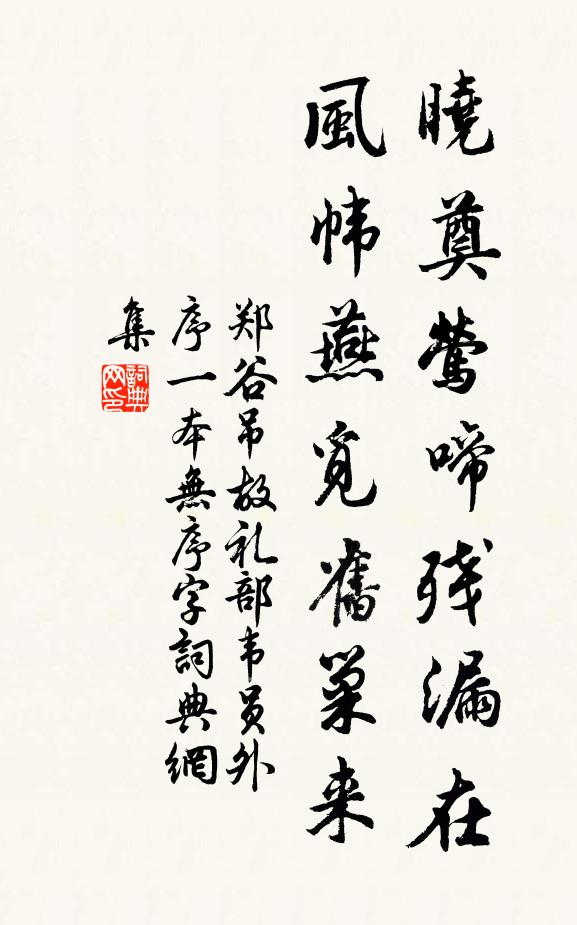 曉奠鶯啼残漏在
風帏燕覓舊巢来
郑谷吊故礼部韦员外
序一本無序字詞典網
集
詞典网印